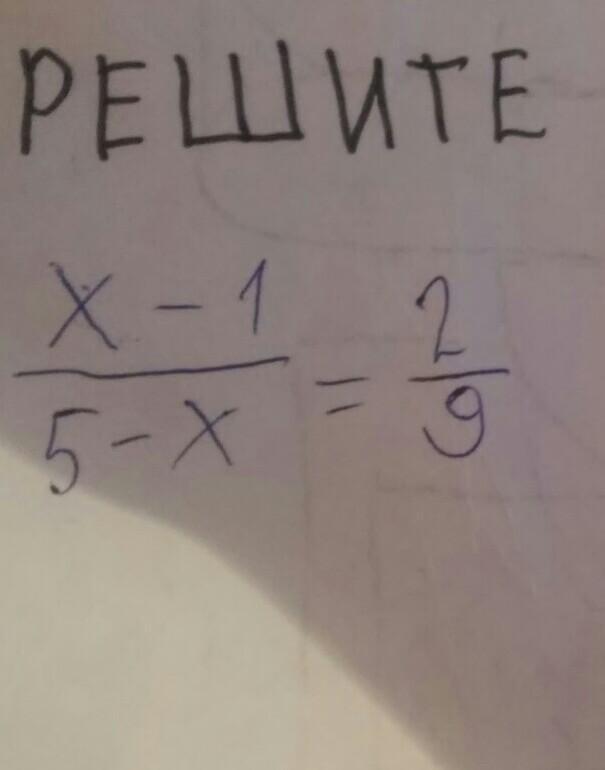 РЕШИТЕ
x - 1
5 - x = 2
9